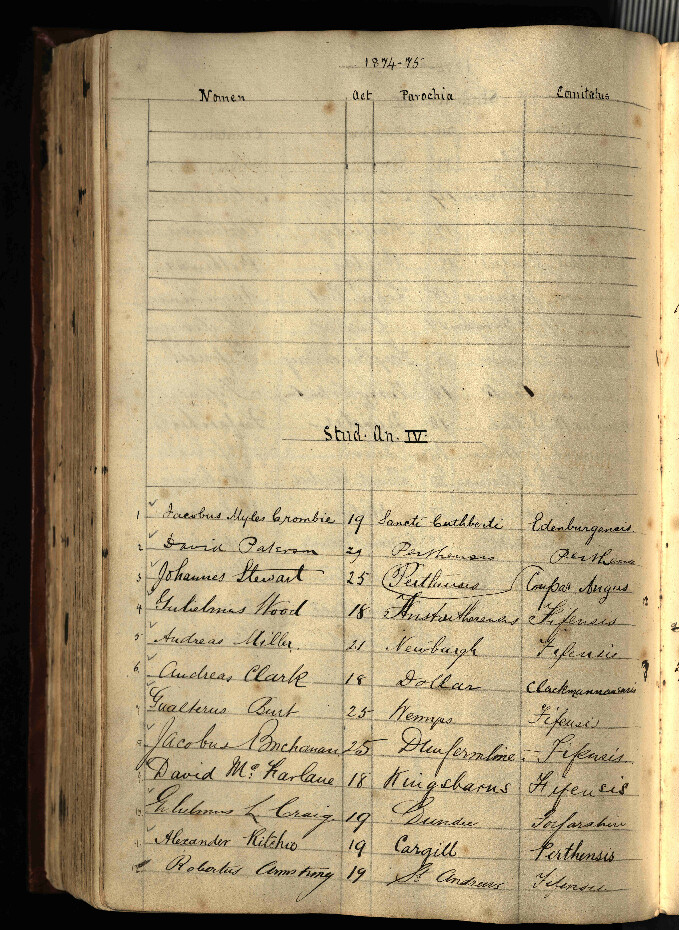 1874-75
Nomen Aet Parochia Comitatus
Stud. An. IV.
1 Jacobus Myles Crombie 19 Sancti Cuthberti Edenburgensis
2 David Paterson 29 Perthensis
3 Johannes Stewart 25 Perthensis Coupar Angus
4 Gulielmus Wood 18 Fifensis
5 Andreas Miller. 21 Newburgh Fifensis
6 Andreas Clark 18 Dollar
7 Gualterus 25 Wemys Fifensis
8 Jacobus Buchanan 25 Dunfermline Fifensis
9 David McFarlane 18 Kingsbarns Fifensis
10 Gulielmus L Craig 19 Dundee
11 Alexander Ritchie 19 Cargill Perthensis
Robertus Armstrong 19 St Andrews Fifensis